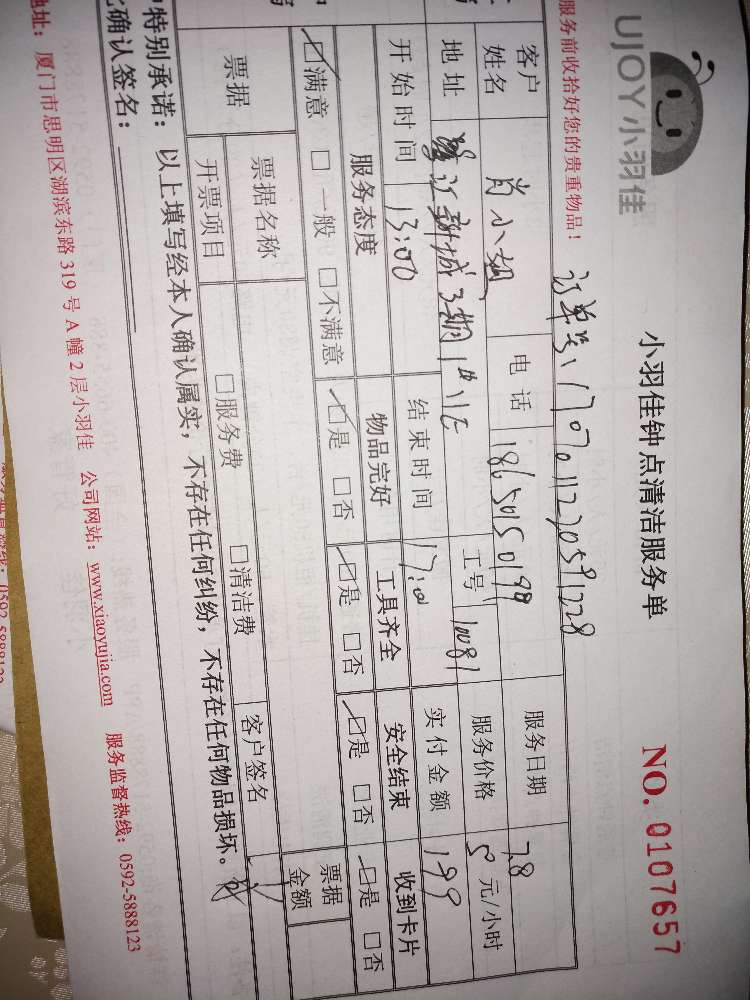 UJOY小羽佳
小羽佳钟点清洁服务单
NO. 0107657
服务前收拾好您的贵重物品！
订单号1707011220591228
客户姓名 肖小姐 电话 18650150198 服务日期 7.8
地址 新城3期 工号 10081 服务价格 元/小时
开始时间 13:00 结束时间 17:00 实付金额 199
服务态度 物品完好 工具齐全 安全结束 收到卡片
☑满意 □一般 □不满意 ☑是 □否 ☑是 □否 ☑是 □否 ☑是 □否
票据 票据名称 客户签名 票据金额
开票项目 □服务费 □清洁费
特别承诺：以上填写经本人确认属实，不存在任何纠纷，不存在任何物品损坏。
确认签名：
地址：厦门市思明区湖滨东路319号A幢2层小羽佳 公司网站：www.xiaoyujia.com 服务监督热线：0592-5888123